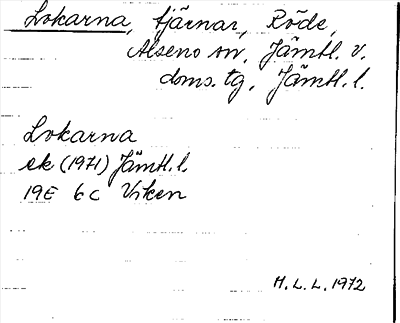 Lokarna, tjärnar, Röde,
Alseno sn, Jämtl. v.
doms. tg, Jämtl. l.
Lokarna
ek (1971) Jämtl. l.
19E 6c Viken
H. L. L. 1972